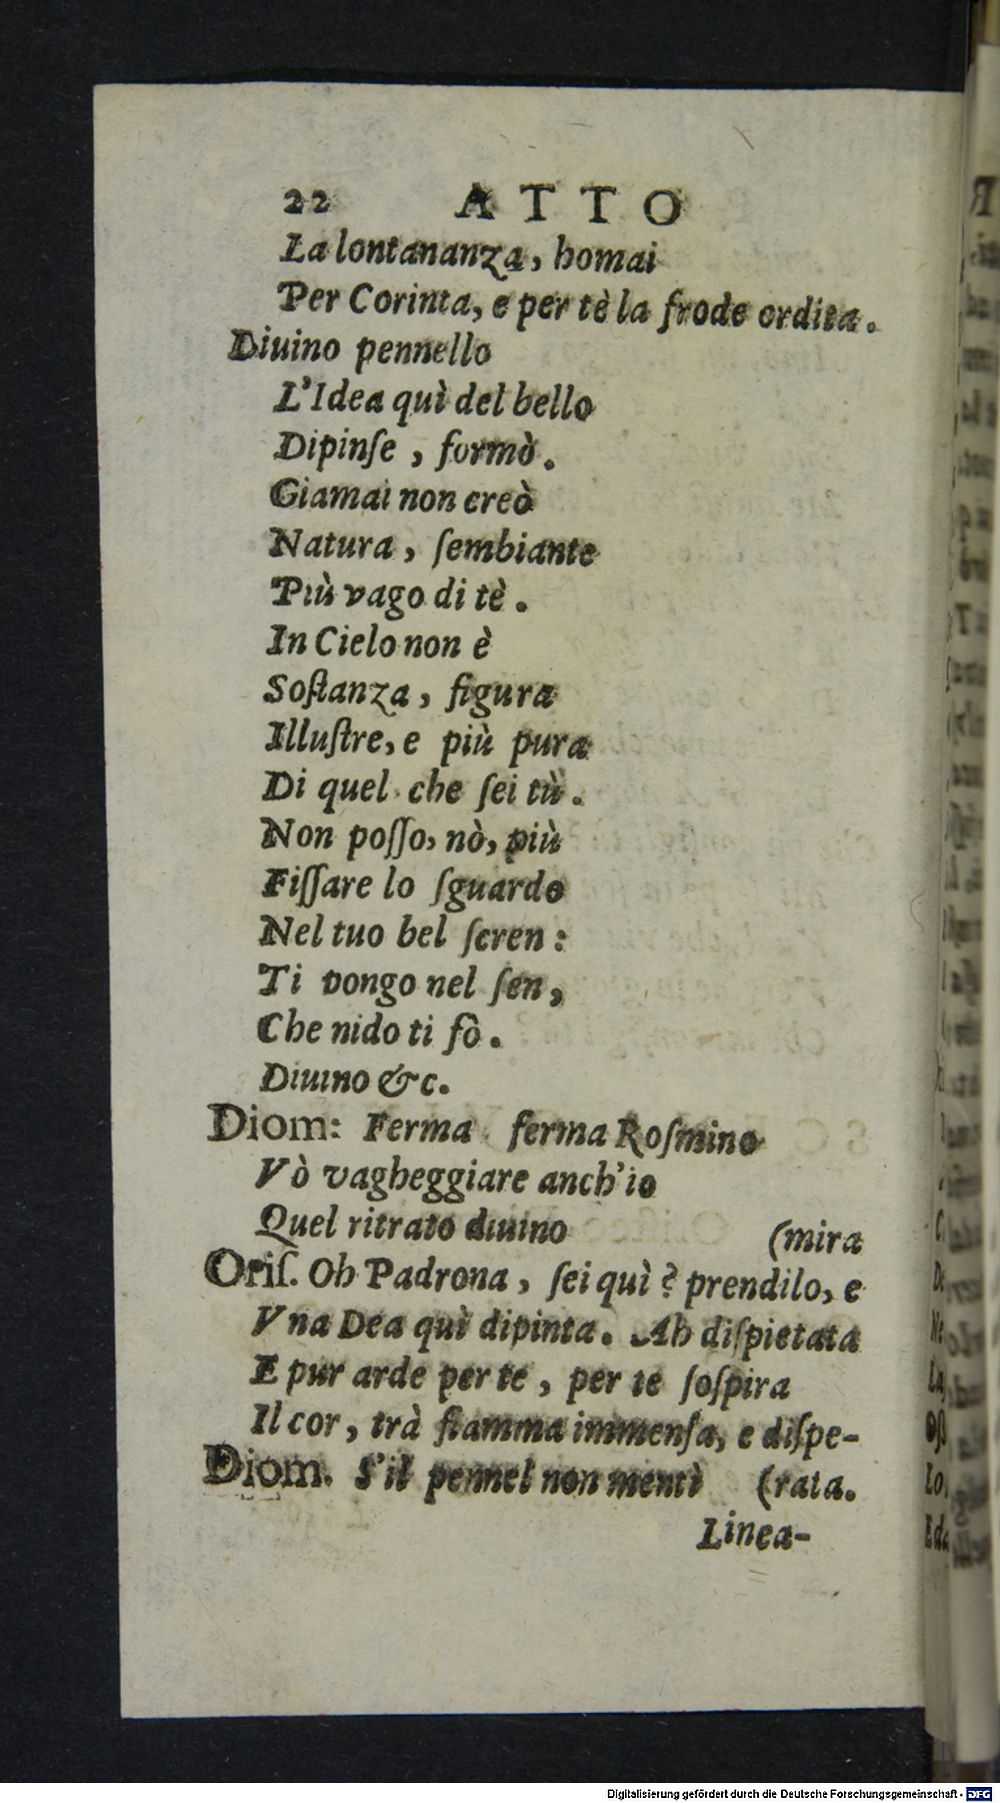 22 ATTO
La lontananza, homai
Per Corinta, e per tè la frode ordita.
Diuino pennello
L'Idea quì del bello
Dipinſe, formò.
Giamai non creò
Natura, ſembiante
Più vago di tè.
In Cielo non è
Soſtanza, figura
Illuſtre, e più pura
Di quel che ſei tù.
Non poſſo, nò, più
Fiſſare lo ſguardo
Nel tuo bel ſeren:
Ti vongo nel ſen,
Che nido ti fò.
Diuino &c.
Diom: Ferma ferma Roſmino
Vò vagheggiare anch'io
Quel ritrato diuino (mira
Oriſ. Oh Padrona, ſei quì? prendilo, e
Vna Dea quì dipinta. Ah diſpietata
E pur arde per te, per te ſoſpira
Il cor, trà fiamma immenſa, e diſpe-
Diom. S'il pennel non mentì (rata.
Linea-
Digitalisierung gefördert durch die Deutsche Forschungsgemeinschaft - DFG